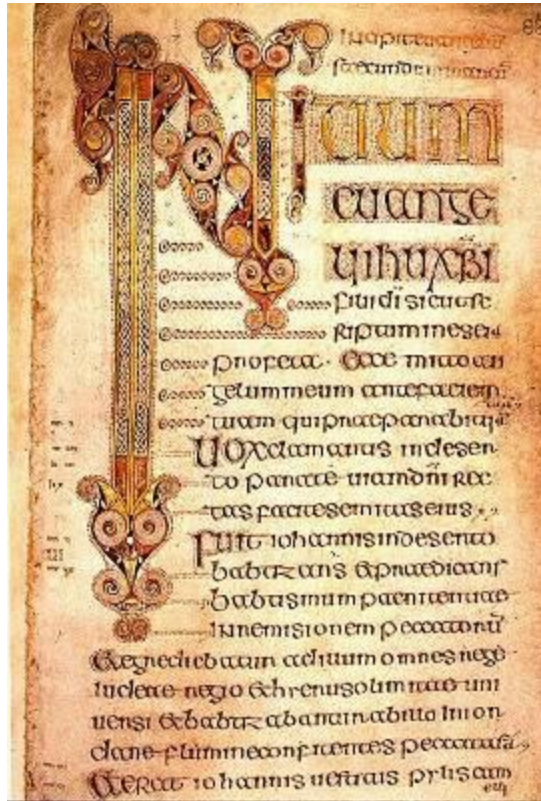 86
secundum
INITIUM
euange
lii ihu xpi
filii di sicut sc
riptum in esei
profeta · Ecce mitto an
gelum meum ante faciem
tuam qui praeparabit
Uox clamantis in deser
to parate uiam dni rec
tas facite semitas eius
Fuit iohannis in deserto
babtizans & praedicans
babtismum paenitentiae
in remisionem peccatorū
& egrediebatur ad illum omnes
iudeae regio & hierusolimitae uni
uersi & babtizabantur ab illo in ior
dane flumine confitentes peccata
& erat iohannis uestitus pylis cam